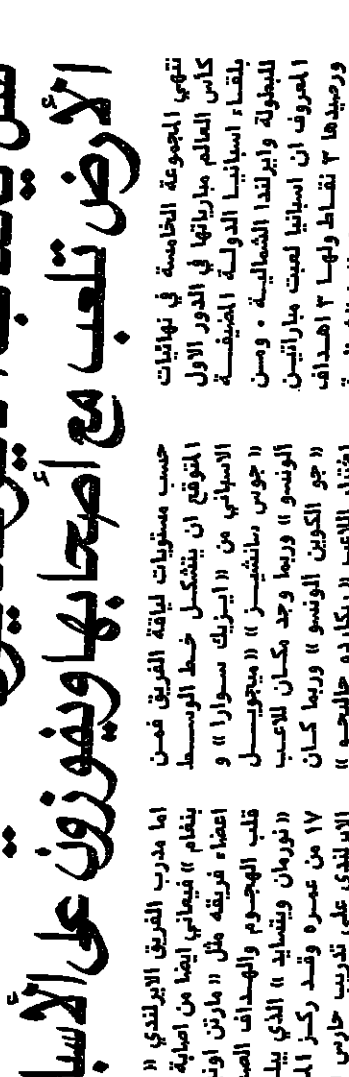 الأرض تلعب مع أصحابها ويفوزون على
تنتهي المجموعة الخامسة في نهائيات
كأس العالم مبارياتها في الدور الاول
بلقاء اسبانيا الدولة المضيفة
للبطولة وايرلندا الشمالية ٠ ومن
المعروف ان اسبانيا لعبت مباراتين
ورصيدها ٣ نقاط ولها ٣ اهداف
حسب مستويات لياقة الفريق فمن
المتوقع ان يتشكل خط الوسط
الاسباني من « ايزيك سوارا » و
« جوس سانشيز » « ميجويل
الونسو » وربما وجد مكان للاعب
« جو الكوين الونسو » وربما كان
اختيار اللاعب « ريكاردو جاليجو »
اما مدرب الفريق الايرلندي «
ينغام » فيعاني ايضا من اصابة
اعضاء فريقه مثل « مارتن
قلب الهجوم والهداف
« نورمان ويتسايد » الذي
١٧ من عمره وقد ركز
الايرلندي على تدريب حارس